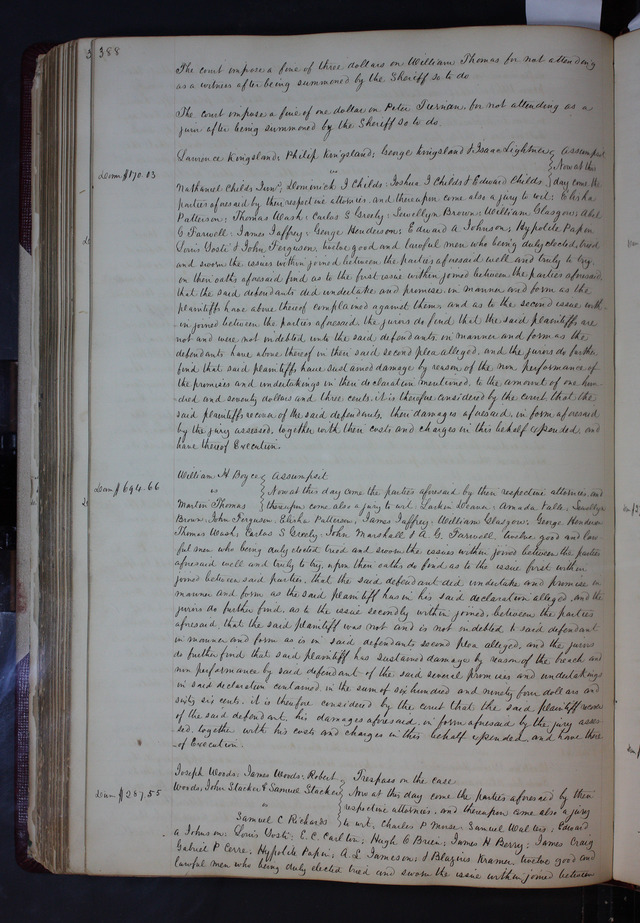 388
The court impose a fine of three dollars on William Thomas for not attending
as a witness after being summoned by the Sheriff so to do
The court impose a fine of one dollar on Peter Tiernan, for not attending as a
juror after being summoned by the Sheriff so to do.
Laurence Kingsland; Philip Kingsland; George Kingsland & Isaac Lightner } Assumpsit
vs } Now at this
Dam $170.03
Nathaniel Childs Junr, Dominick J Childs; Joshua J Childs & Edward Childs } day come the
parties aforesaid by their respective attornies, and thereupon come also a jury to wit: Elisha
Patterson; Thomas Wash; Carlos S Greely; Lewellyn Brown; William Glasgow; Abel
G Farwell; James Jaffrey; George Henderson; Edward A Johnson; Hypolite Papin
Louis Gosti & John Ferguson, twelve good and lawful men who being duly elected, tried
and sworn the issues within joined between the parties aforesaid well and truly to try,
on their oaths aforesaid find as to the first issue within joined between the parties aforesaid,
that the said defendants did undertake and promise in manner and form as the
plaintiffs have above thereof complained against them, and as to the second issue with-
in joined between the parties aforesaid, the jurors do find that the said plaintiffs are
not and were not indebted unto the said defendants in manner and form as the
defendants have above thereof in their said second plea alleged, and the jurors do further
find that said plaintiffs have sustained damage by reason of the non performance of
the promises and undertakings in their declaration mentioned, to the amount of one hun-
dred and seventy dollars and three cents. it is therefore considered by the court that the
said plaintiffs recover of the said defendants, their damages aforesaid, in form aforesaid
by the jury assessed, together with their costs and charges in this behalf expended, and
have thereof Execution.
William H Boyce } Assumpsit
Dam $694.66
vs } Now at this day come the parties aforesaid by their respective attornies, and
Martin Thomas } thereupon come also a jury to wit: Larkin Deaver; Amada Valle, Lewellyn
Brown; John Ferguson; Elisha Patterson; James Jaffrey; William Glasgow; George Henderson
Thomas Wash; Carlos S Greely; John Marshall & A. G. Farwell, twelve good and law-
ful men who being duly elected tried and sworn the issues within joined between the parties
aforesaid well and truly to try, upon their oaths do find as to the issue first within
joined between said parties, that the said defendant did undertake and promise in
manner and form as the said plaintiff has in his said declaration alleged, and the
jurors do further find, as to the issue secondly within joined, between the parties
aforesaid, that the said plaintiff was not and is not indebted to said defendant
in manner and form as is in said defendants second plea alleged, and the jurors
do further find that said plaintiff has sustained damage by reason of the breach and
non performance by said defendant of the said several promises and undertakings
in said declaration contained in the sum of six hundred and ninety four dollars and
sixty six cents. it is therefore considered by the court that the said plaintiff recover
of the said defendant, his damages aforesaid, in form aforesaid by the jury asses-
sed, together with his costs and charges in this behalf expended and have there-
of Execution.
Joseph Woods; James Woods; Robert } Trespass on the case
Dam $287.55
Woods, John Stacker & Samuel Stacker } Now at this day come the parties aforesaid by their
vs } respective attornies, and thereupon come also a jury
Samuel C. Richards } to wit, Charles P Morse; Samuel Walters; Edward
A Johnson; Louis Gosti; E. C. Carlton; Hugh O Brien; James H Berry; James Craig
Gabriel P Cerre; Hypolite Papin; A. L Jameson; & Blazius Kramer, twelve good and
lawful men who being duly elected tried and sworn the issue within joined between